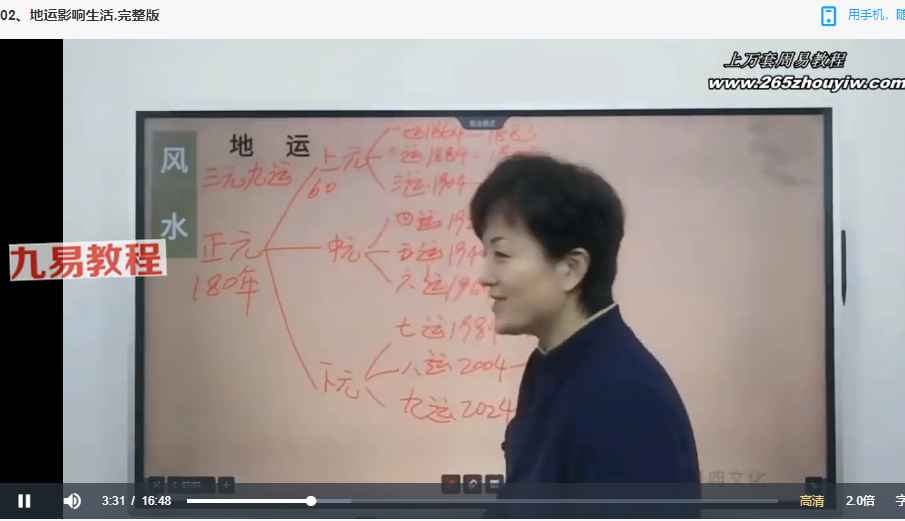 02、地运影响生活.完整版
用手机，随
上万套周易教程
www.265zhouyiw.com
风
水
地 运
三元九运
正元
180年
上元
60
一运1864-1883
运1884-
三运1904
中元
四运19
五运194
六运19
下元
七运1984
八运2004-
九运2024
九易教程
四文化
3:31 / 16:48
高清
2.0倍
字